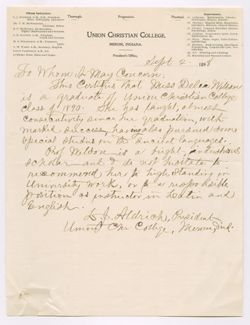 Thorough. Progressive. Practical.
UNION CHRISTIAN COLLEGE,
MEROM, INDIANA.
President's Office.
Sept 2 189
To Whom It May Concern:
This Certifies that Miss Delia Wilson
is a graduate of Union Christian College,
class of 1890. She has taught, almost
consecutively since her graduation, with
marked success, has also pursued some
special studies in the ancient languages.
Prof Wilson is a bright, industrious
scholar and I do not hesitate to
recommend her to high standing in
University work, or to a responsible
position as instructor in Latin and
English.
L. J. Aldrich, President
Union Chr College, Merom, Ind.